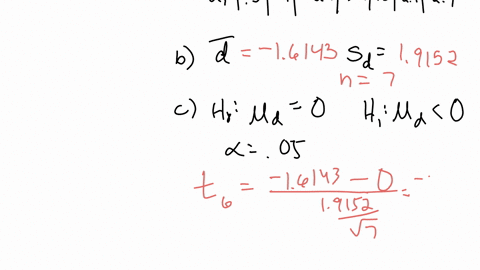 b) d̅ = -1.6143 Sd = 1.9152
n = 7
c) H₀: μd = 0 H₁: μd < 0
α = .05
t₆ = (-1.6143 - 0) / (1.9152 / √7) = -